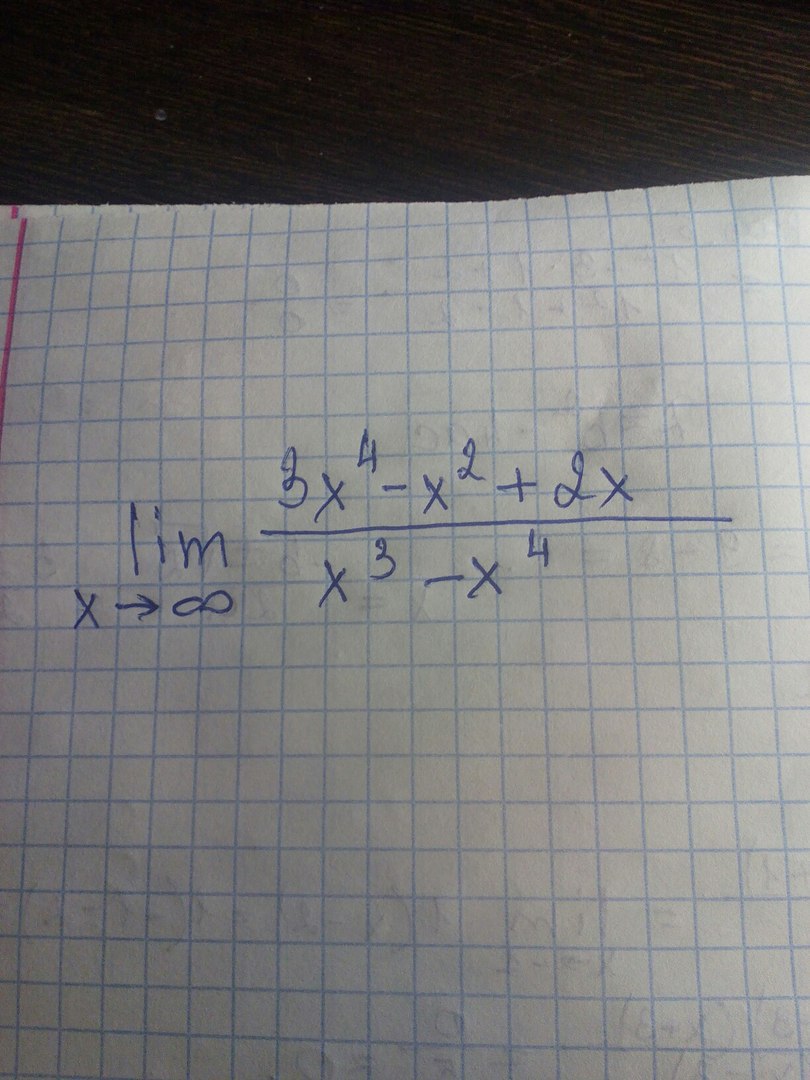 lim 3x⁴ - x² + 2x
x → ∞ x³ - x⁴